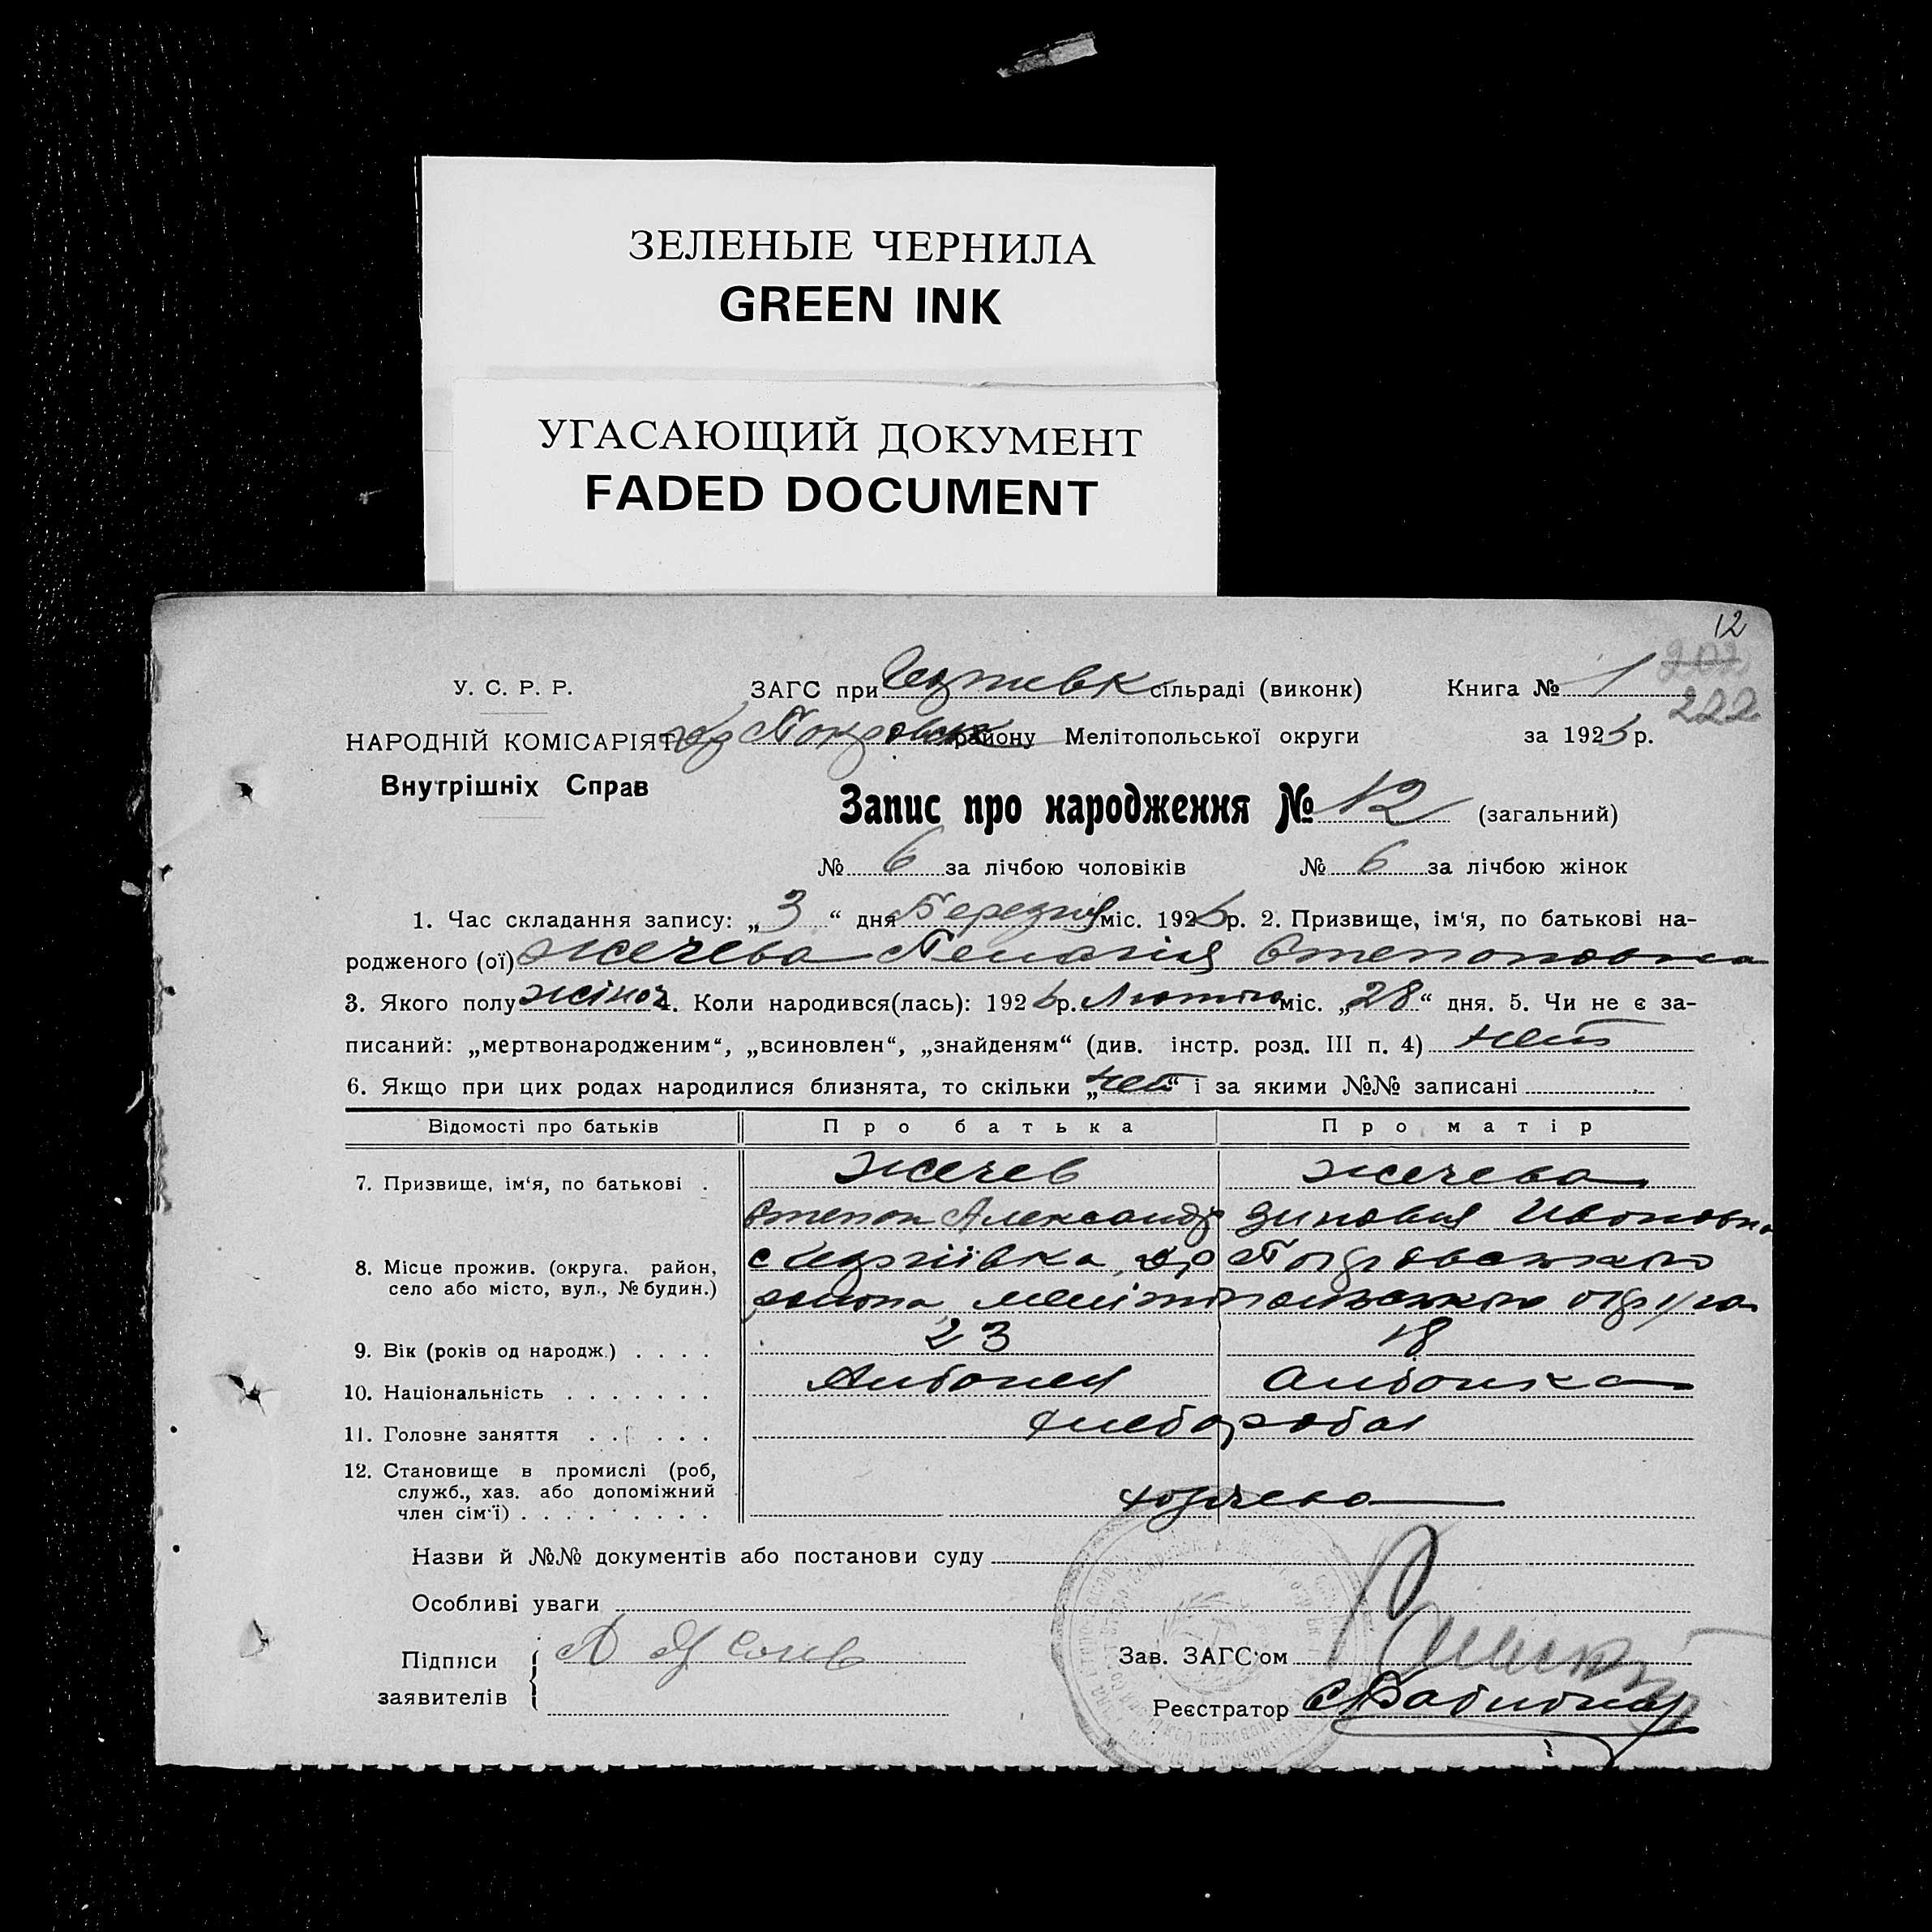 ЗЕЛЕНЫЕ ЧЕРНИЛА
GREEN INK
УГАСАЮЩИЙ ДОКУМЕНТ
FADED DOCUMENT
12
202
222
У. С. Р. Р. ЗАГС при сільраді (виконк) Книга № 1
НАРОДНІЙ КОМІСАРІЯТ Покровск району Мелітопольської округи за 192 р.
Внутрішніх Справ
Запис про народження № 12 (загальний)
№ 6 за лічбою чоловіків № 6 за лічбою жінок
1. Час складання запису: „ 3 “ дня Березня міс. 192 р. 2. Призвище, ім‘я, по батькові на-
родженого (ої) Жечева Пелагія Степоновна
3. Якого полу жіноч 4. Коли народився(лась): 192 р. Лютого міс. „ 28 “ дня. 5. Чи не є за-
писаний: „мертвонародженим“, „всиновлен“, „знайденям“ (див. інстр. розд. III п. 4) нет
6. Якщо при цих родах народилися близнята, то скільки „ нет “ і за якими №№ записані
Відомості про батьків Про батька Про матір
7. Призвище, ім‘я, по батькові . Жечев Жечева
Степон Александр Зиновия Ивоновна
8. Місце прожив. (округа. район, Покровського
село або місто, вул., № будин.) району мелітопольського округа
9. Вік (років од народж.) . . . . 23 18
10. Національність . . . . . . . Албонец Олбонка
11. Головне заняття . . . . . . хлебороби
12. Становище в промислі (роб,
служб., хаз. або допоміжний
член сім‘ї) . . . . . . . . .
Назви й №№ документів або постанови суду
Особливі уваги
Підписи
заявителів
Зав. ЗАГС‘ом
Реєстратор